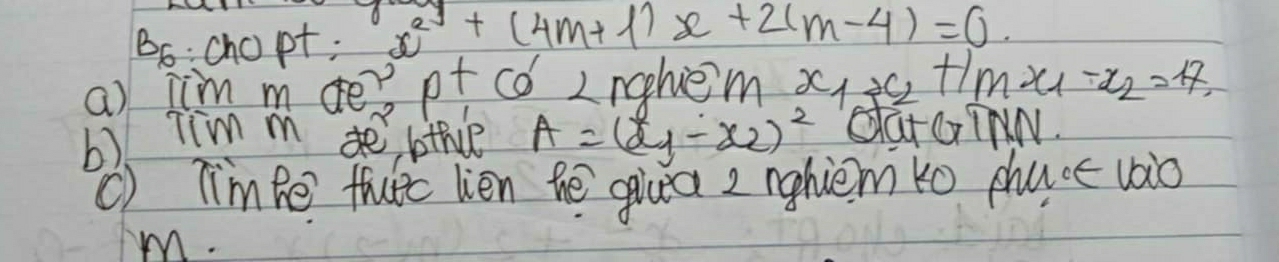 B6: cho pt: x² + (4m+1)x + 2(m-4) = 0.
a) Tìm m để pt có 2 nghiệm x₁, x₂ t/m x₁ - x₂ = 17.
b) Tìm m để bthức A = (x₁ - x₂)² đạt GTNN.
c) Tìm hệ thức liên hệ giữa 2 nghiệm ko phụ ∈ vào
m.